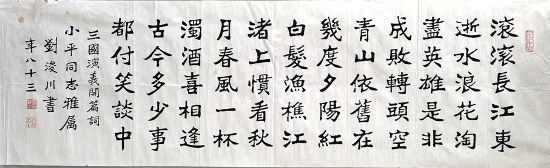 滾滾長江東
逝水浪花淘
盡英雄是非
成敗轉頭空
青山依舊在
幾度夕陽紅
白髮漁樵江
渚上慣看秋
月春風一杯
濁酒喜相逢
古今多少事
都付笑談中
三國演義開篇詞
小平同志雅属
劉浚川書
年八十三